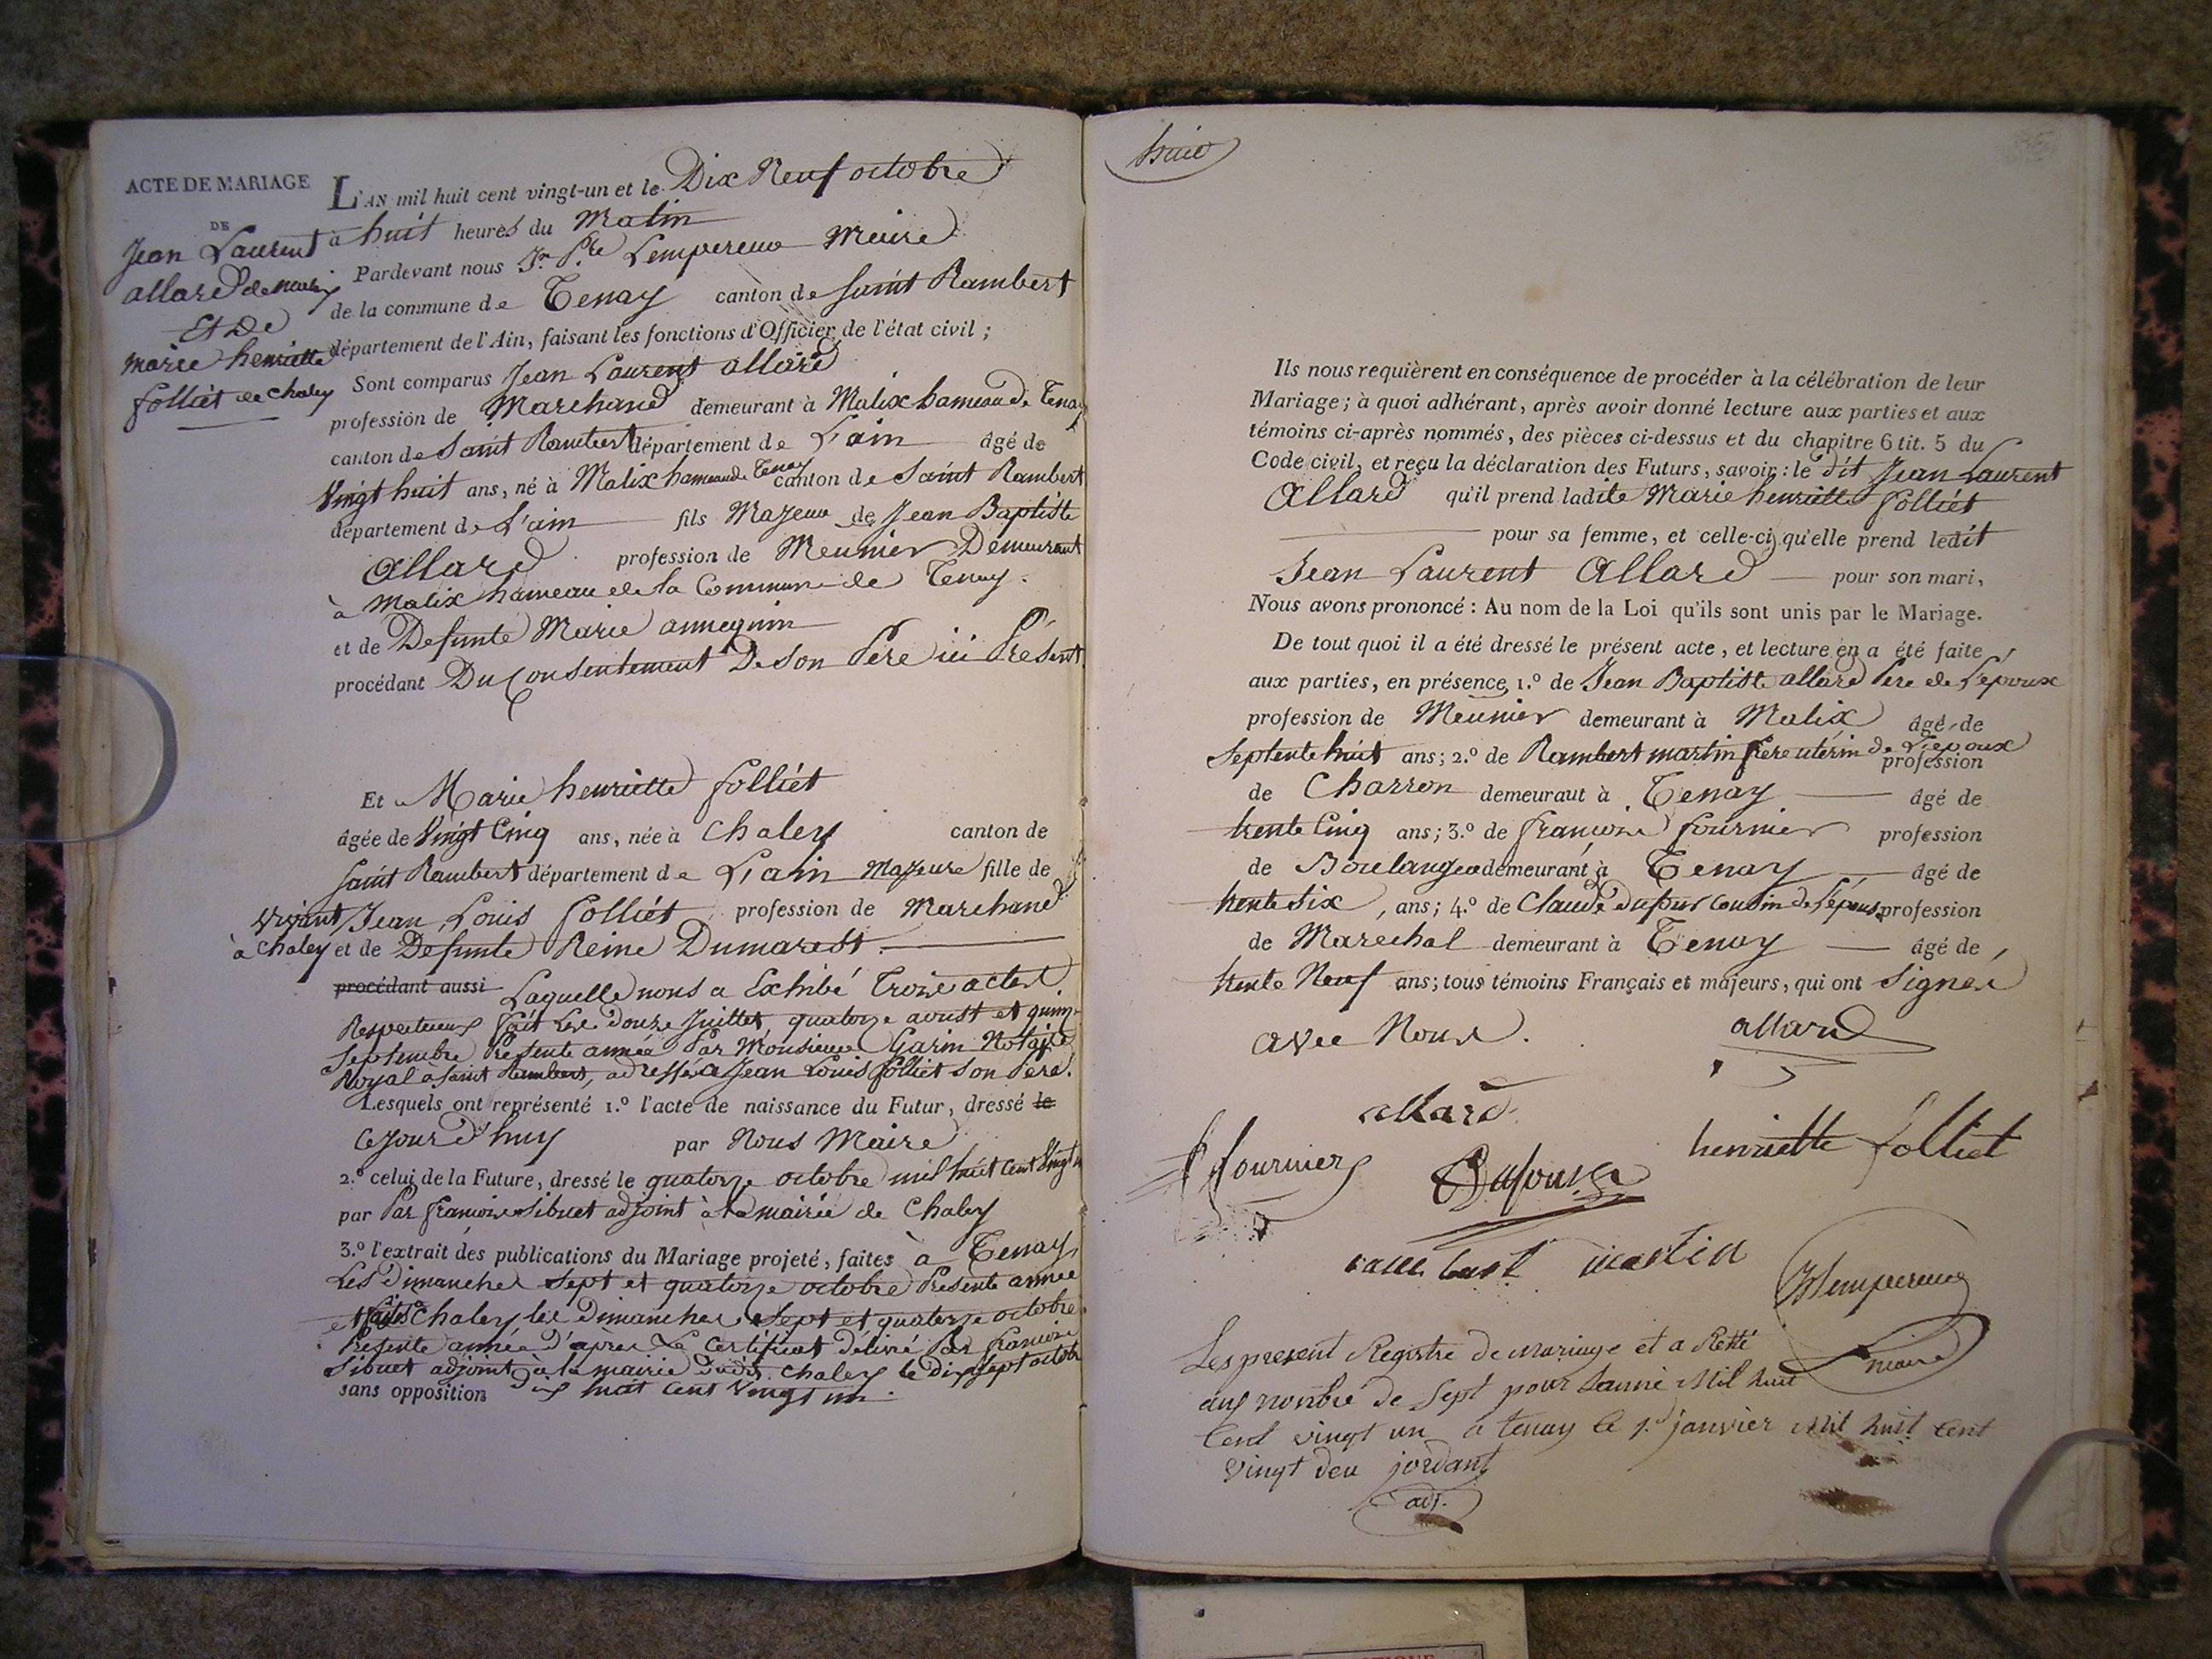 ACTE DE MARIAGE
DE
Jean Laurent
allard de malix
Et De
marie henriette
folliet de chaley
L'AN mil huit cent vingt-un et le Dix Neuf octobre
à huit heures du Matin
Pardevant nous Jn. Pre Lempereur Maire
de la commune de Tenay canton de Saint Rambert
département de l'Ain, faisant les fonctions d'Officier de l'état civil ;
Sont comparus Jean Laurent allard
profession de Marchand demeurant à Malix hameau de Tenay
canton de Saint Rambert département de L'ain âgé de
Vingt huit ans, né à Malix hameau de Tenay canton de Saint Rambert
département de L'ain fils Majeur de Jean Baptiste
Allard profession de Meunier Demeurant
à Malix hameau de la Commune de Tenay.
et de Defunte Marie annequin
procédant Du Consentement De son Père ici Présent
Et Marie henriette folliet
âgée de Vingt Cinq ans, née à Chaley canton de
Saint Rambert département de L'ain Majeure fille de
vivant Jean Louis folliet profession de Marchand
à Chaley et de Defunte Reine Dumarest.
procédant aussi Laquelle nous a Exhibé Trois actes
Respectueux fait Les douze Juillet, quatorze aoust et quinze
Septembre Presente année Par Monsieur Garin Notaire
Royal à Saint Rambert, adressé a Jean Louis folliet son Père.
Lesquels ont représenté 1.º l'acte de naissance du Futur, dressé le
Cejourd'huy par Nous Maire
2.º celui de la Future, dressé le quatorze octobre mil huit Cent Vingt un
par Par françois Sibuet adjoint à la mairie de Chaley
3.º l'extrait des publications du Mariage projeté, faites à Tenay
Les Dimanches sept et quatorze octobre Presente année
et faites à Chaley les Dimanches sept et quatorze octobre
Presente année d'après Le Certificat délivré Par françois
Sibuet adjoint à la mairie dudit Chaley le dix sept octobre
sans opposition mil huit Cent Vingt un.
huit
Ils nous requièrent en conséquence de procéder à la célébration de leur
Mariage; à quoi adhérant, après avoir donné lecture aux parties et aux
témoins ci-après nommés, des pièces ci-dessus et du chapitre 6 tit. 5 du
Code civil, et reçu la déclaration des Futurs, savoir : le dit Jean Laurent
Allard qu'il prend ladite Marie henriette folliet
pour sa femme, et celle-ci qu'elle prend ledit
Jean Laurent Allard pour son mari,
Nous avons prononcé : Au nom de la Loi qu'ils sont unis par le Mariage.
De tout quoi il a été dressé le présent acte, et lecture en a été faite
aux parties, en présence 1.º de Jean Baptiste allard Père de L'époux
profession de Meunier demeurant à Malix âgé de
Septente huit ans; 2.º de Rambert martin frere utérin de L'epoux profession
de Charron demeurant à Tenay âgé de
trente Cinq ans; 3.º de françois fournier profession
de Boulanger demeurant à Tenay âgé de
trente six, ans; 4.º de Claude dufour Cousin de L'épous profession
de Marechal demeurant à Tenay âgé de
trente Neuf ans; tous témoins Français et majeurs, qui ont signés
avec Nous.
allard
allard
henriette folliet
f fournier
Dufour
rambert martin
Lempereur
maire
Les present Registre de mariage et a Retté
aux nonbre de Sept pour Lanné Mil huit
Cent vingt un a tenay le 1.er janvier Mil huit Cent
vingt deu jordant
adj.